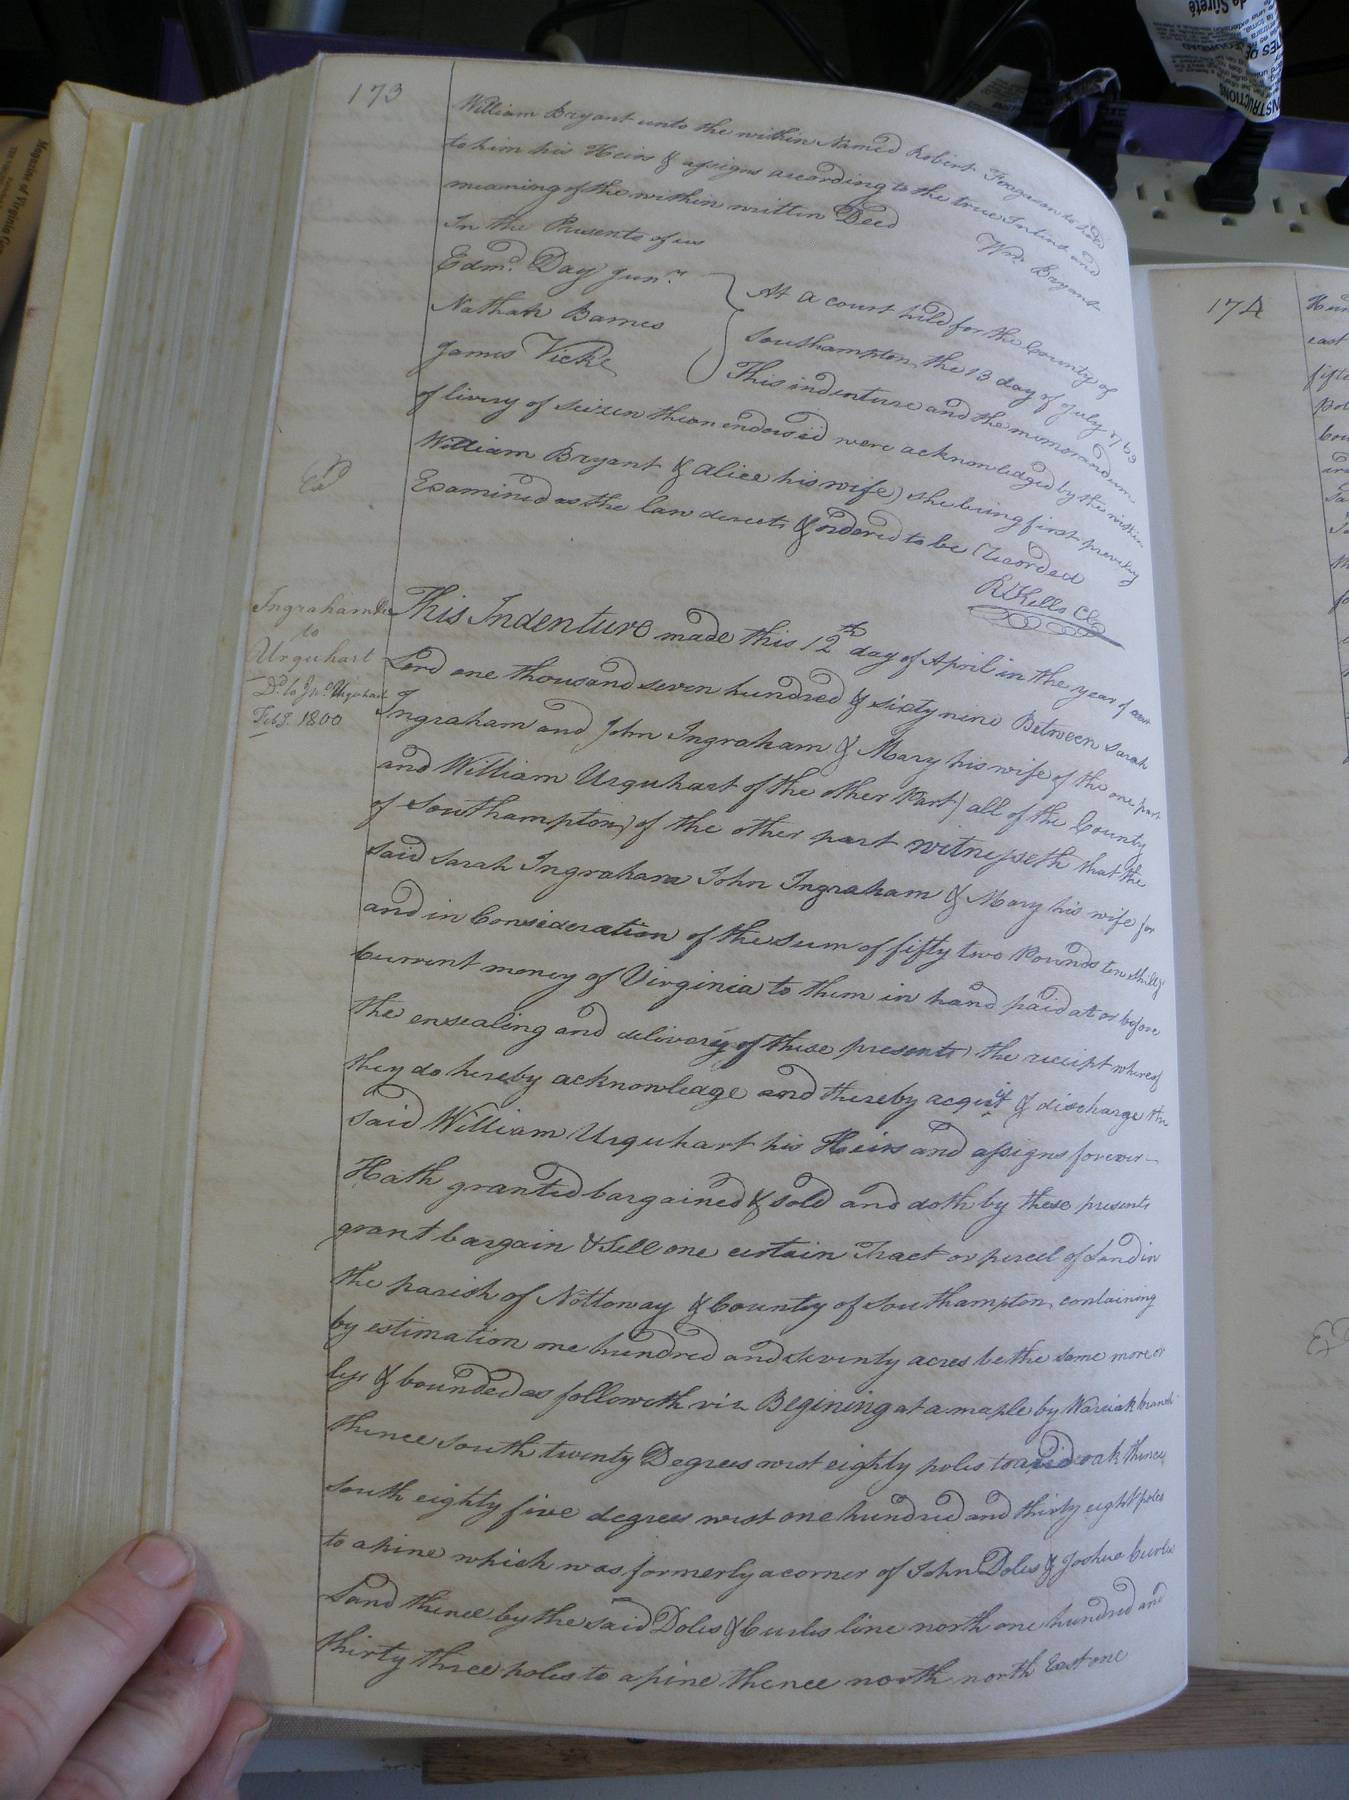 173
William Bryant unto the within Named Robert Ferguson to hold
to him his Heirs & assigns according to the true Intent and
meaning of the within written Deed
Wm. Bryant
In the Presents of us
Edmd. Day Junr.
Nathan Barnes
James Vick
At a court held for the County of
Southampton the 13 day of July 1769
This indenture and the memorandum
of livery of seizen theron endorsed were acknowledged by the within
William Bryant & Alice his wife) she being first previly
Examined as the law directs & ordered to be Recorded
Exd
R Kello Clk
Ingraham &c
to
Urquhart
Dd. to Jno. Urquhart
Feb 8. 1800
This Indenture made this 12th day of April in the year of our
Lord one thousand seven hundred & sixty nine Between Sarah
Ingraham and John Ingraham & Mary his wife of the one part
and William Urquhart of the other Part) all of the County
of Southampton) of the other part witnesseth that the
said Sarah Ingraham John Ingraham & Mary his wife for
and in Consideration of the Sum of fifty two Pounds ten shillgs
Current money of Virginia to them in hand paid at or before
the ensealing and delivery of these presents) the receipt whereof
they do hereby acknowledge and thereby acquit & discharge the
said William Urquhart his Heirs and assigns forever
Hath granted bargained & sold and doth by these presents
grant bargain & Sell one certain Tract or percel of Land in
the parish of Nottoway & County of Southampton, containing
by estimation one hundred and seventy acres be the same more or
less & bounded as followeth viz Begining at a maple by branch
thence South twenty Degrees west eighty poles to a red oak thence
South eighty five degrees west one hundred and thirty eight poles
to a pine which was formerly a corner of John Doles & Joshua Curles
Land thence by the said Doles & Curles line north one hundred and
thirty three poles to a pine thence north north East one
174
east